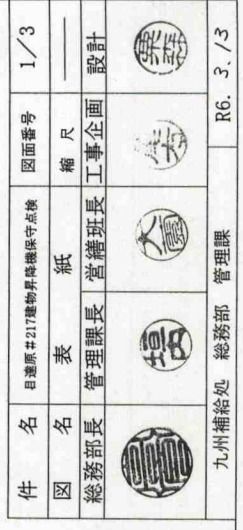 件 名 目達原#217建物昇降機保守点検 図面番号 1/3
図 名 表 紙 縮 尺 ――
総務部長 管理課長 営繕班長 工事企画 設計
堀内
九州補給処 総務部 管理課 R6. 3. 13